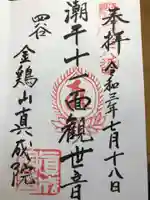 奉拝 令和二年七月十八日
潮干十一面観世音
四谷
金鶏山真成院